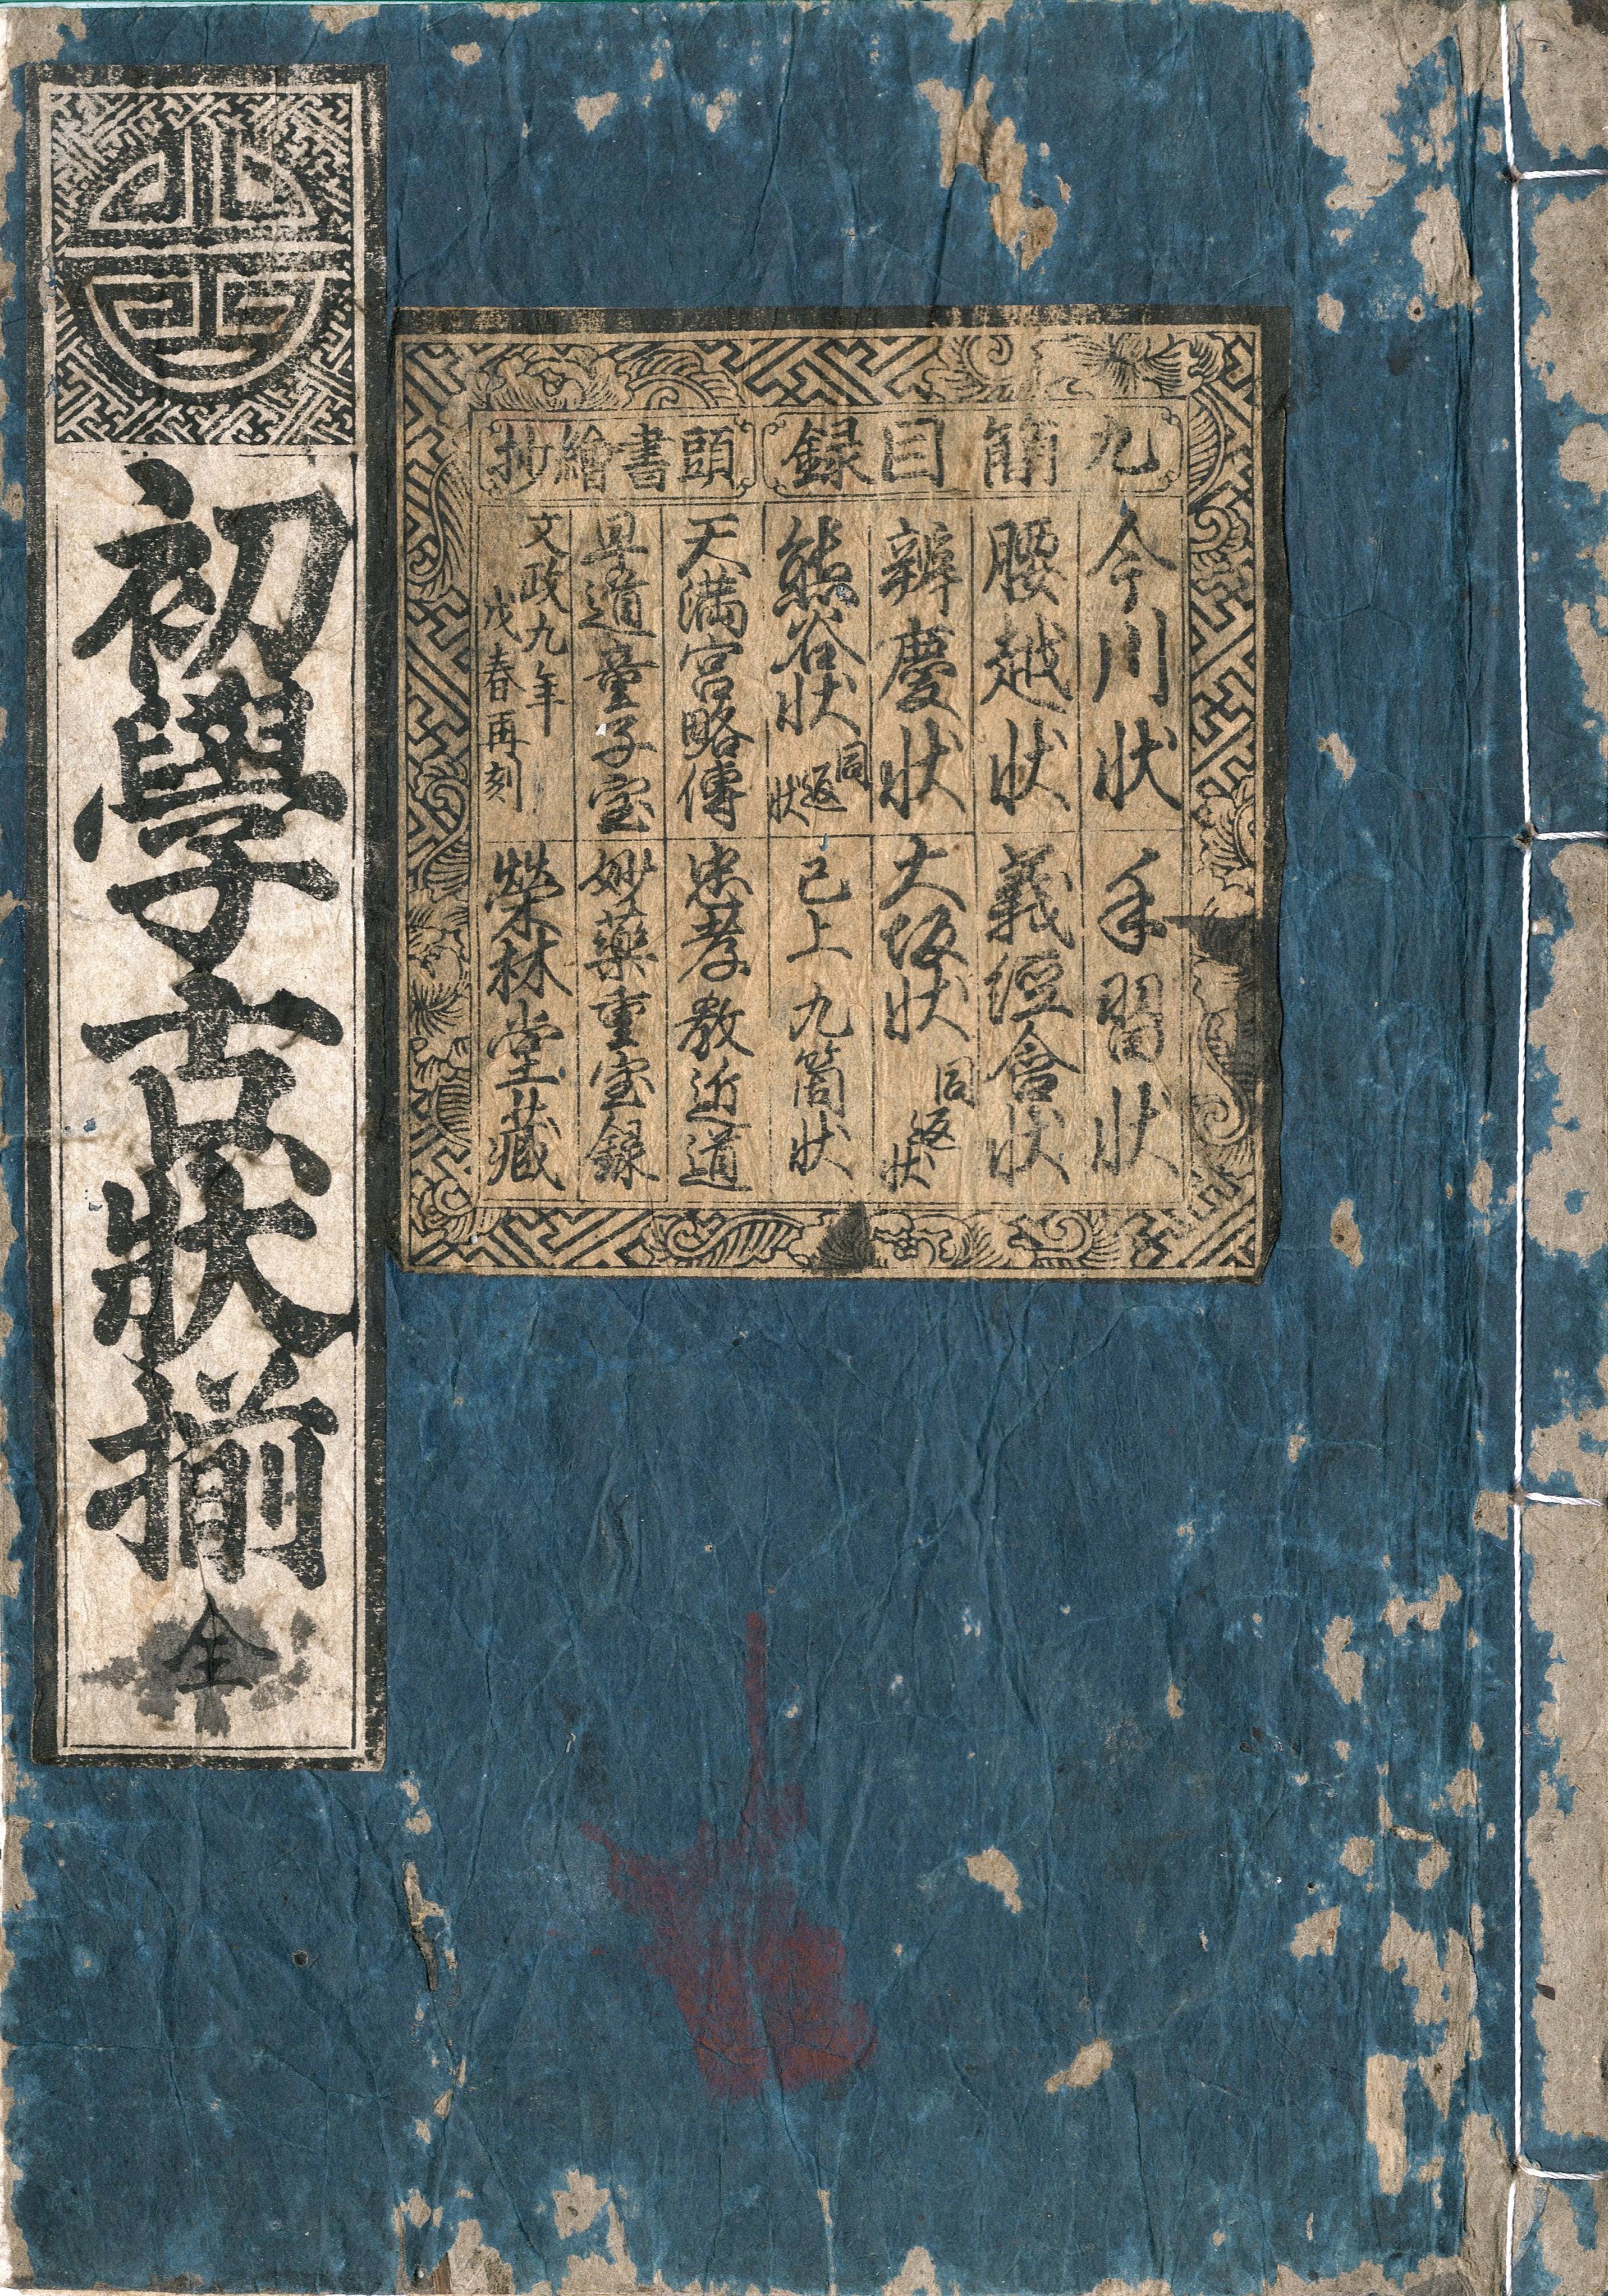 初學古狀揃 全
九箇目録
今川状 手習状
腰越状 義經含状
辨慶状 大坂状 同返状
熊谷状 同返状 已上九箇状
頭書繪抄
天満宮略傳 忠孝教近道
早道童子宝 妙藥重宝録
文政九年
戌春再刻
榮林堂藏